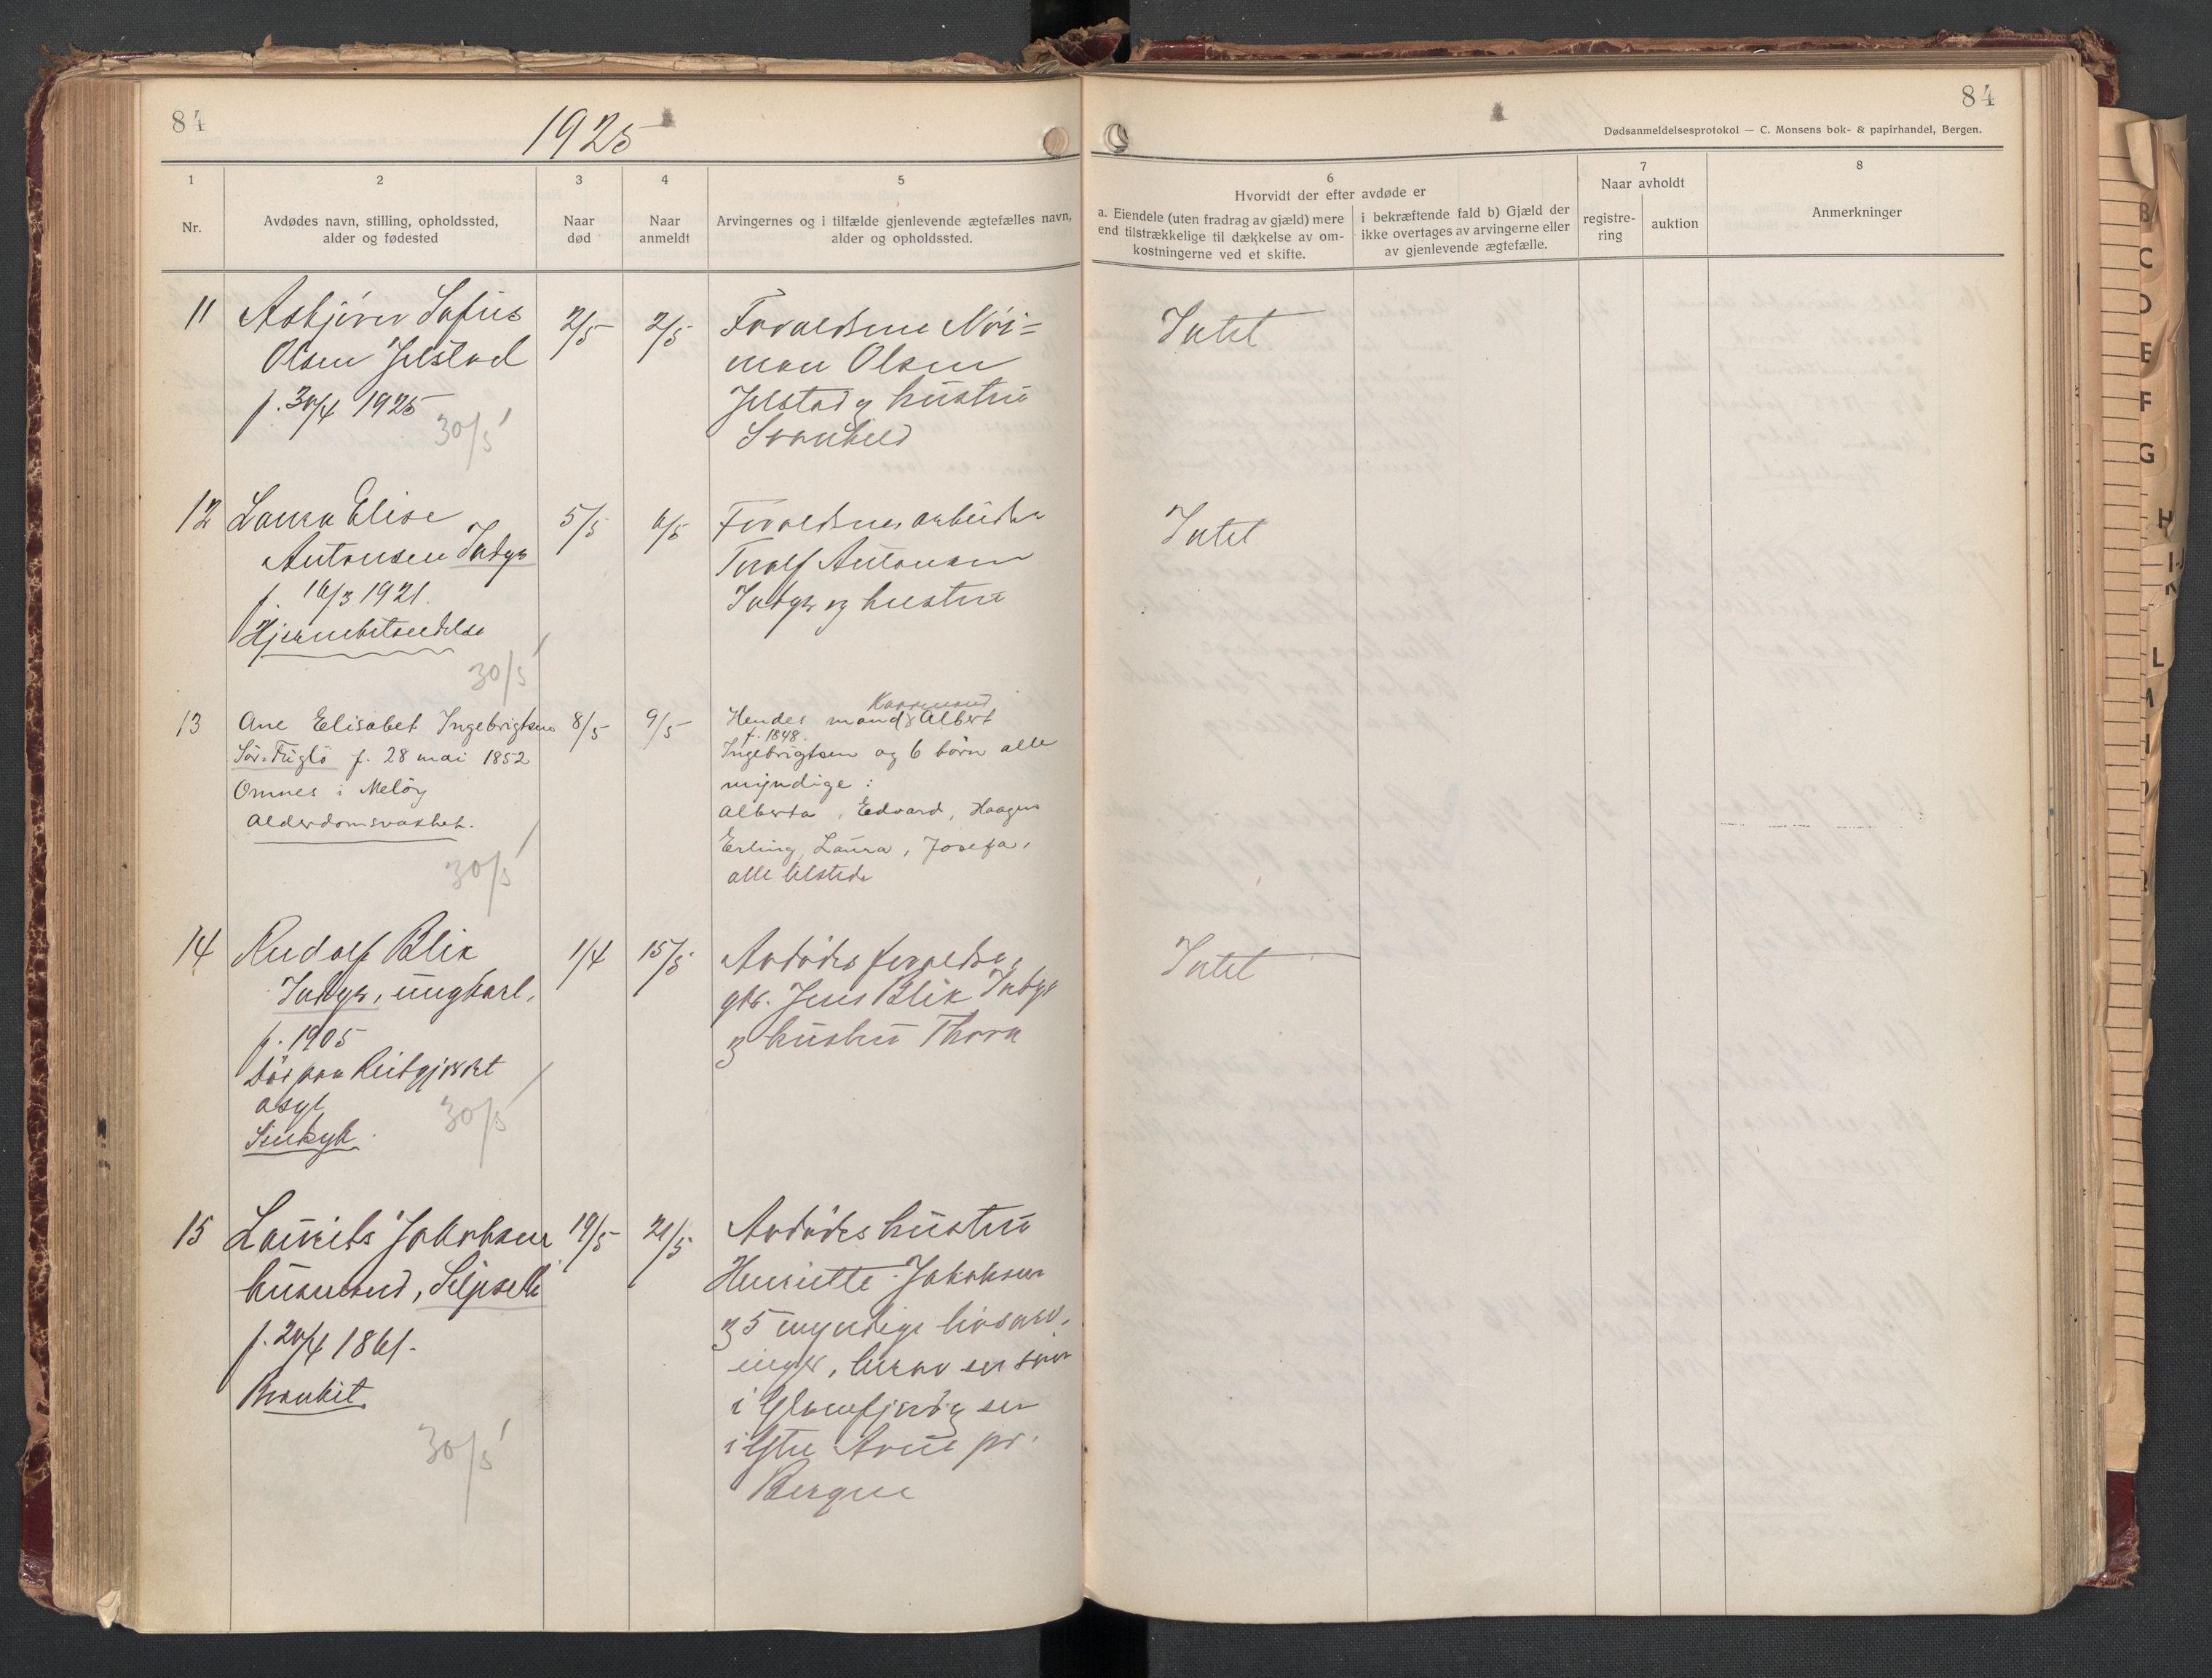 84
1925
1
2
3
4
5
Nr.
Avdødes navn, stilling, opholdssted,
alder og fødested
Naar
død
Naar
anmeldt
Arvingernes og i tilfælde gjenlevende ægtefælles navn,
alder og opholdssted.
84
Dødsanmeldelsesprotokol — C. Monsens bok- & papirhandel, Bergen.
6
7
8
Hvorvidt der efter avdøde er
a. Eiendele (uten fradrag av gjæld) mere
end tilstrækkelige til dækkelse av om-
kostningerne ved et skifte.
i bekræftende fald b) Gjæld der
ikke overtages av arvingerne eller
av gjenlevende ægtefælle.
Naar avholdt
registre-
ring
auktion
Anmerkninger
11
Asbjörn Sofus
Olsen Jelstad
f. 30/4 1925
30/5
2/5
2/5
Forældrene Nor=
man Olsen
Jelstad og hustru
Svanhild
Intet
12
Laura Elise
Antonsen Indyr
f. 16/3 1921.
Hjernebetændelse
30/5
5/5
6/5
Forældrene arbeider
Torolf Antonsen
Indyr og hustru
Intet
13
Ane Elisabet Ingebrigtsen
Sör-Fuglö f. 28 mai 1852
Omnes i Melöy
Alderdomsvakhet.
30/5
8/5
9/5
Kaarmand
Hendes mand Albert
f. 1848.
Ingebrigtsen og 6 börn alle
myndige:
Alberta, Edvard, Haagen
Erling, Laura, Josefa,
alle tilstede
14
Rudolf Blix
Indyr, ungkarl,
f. 1905
Död paa Reitgjerdet
asyl
Sindsyk
30/5
1/4
15/5
Avdödes forældre,
gbr. Jens Blix Indyr
og hustru Thora
Intet
15
Laurits Jakobsen
husmand, Selpsetli
f. 20/4 1861.
Bronkit
30/5
19/5
21/5
Avdödes hustru
Henriette Jakobsen
og 5 myndige livsarv.
inger, hvorav en sön
i Glomfjord og en
i Ytre Arne pr.
Bergen